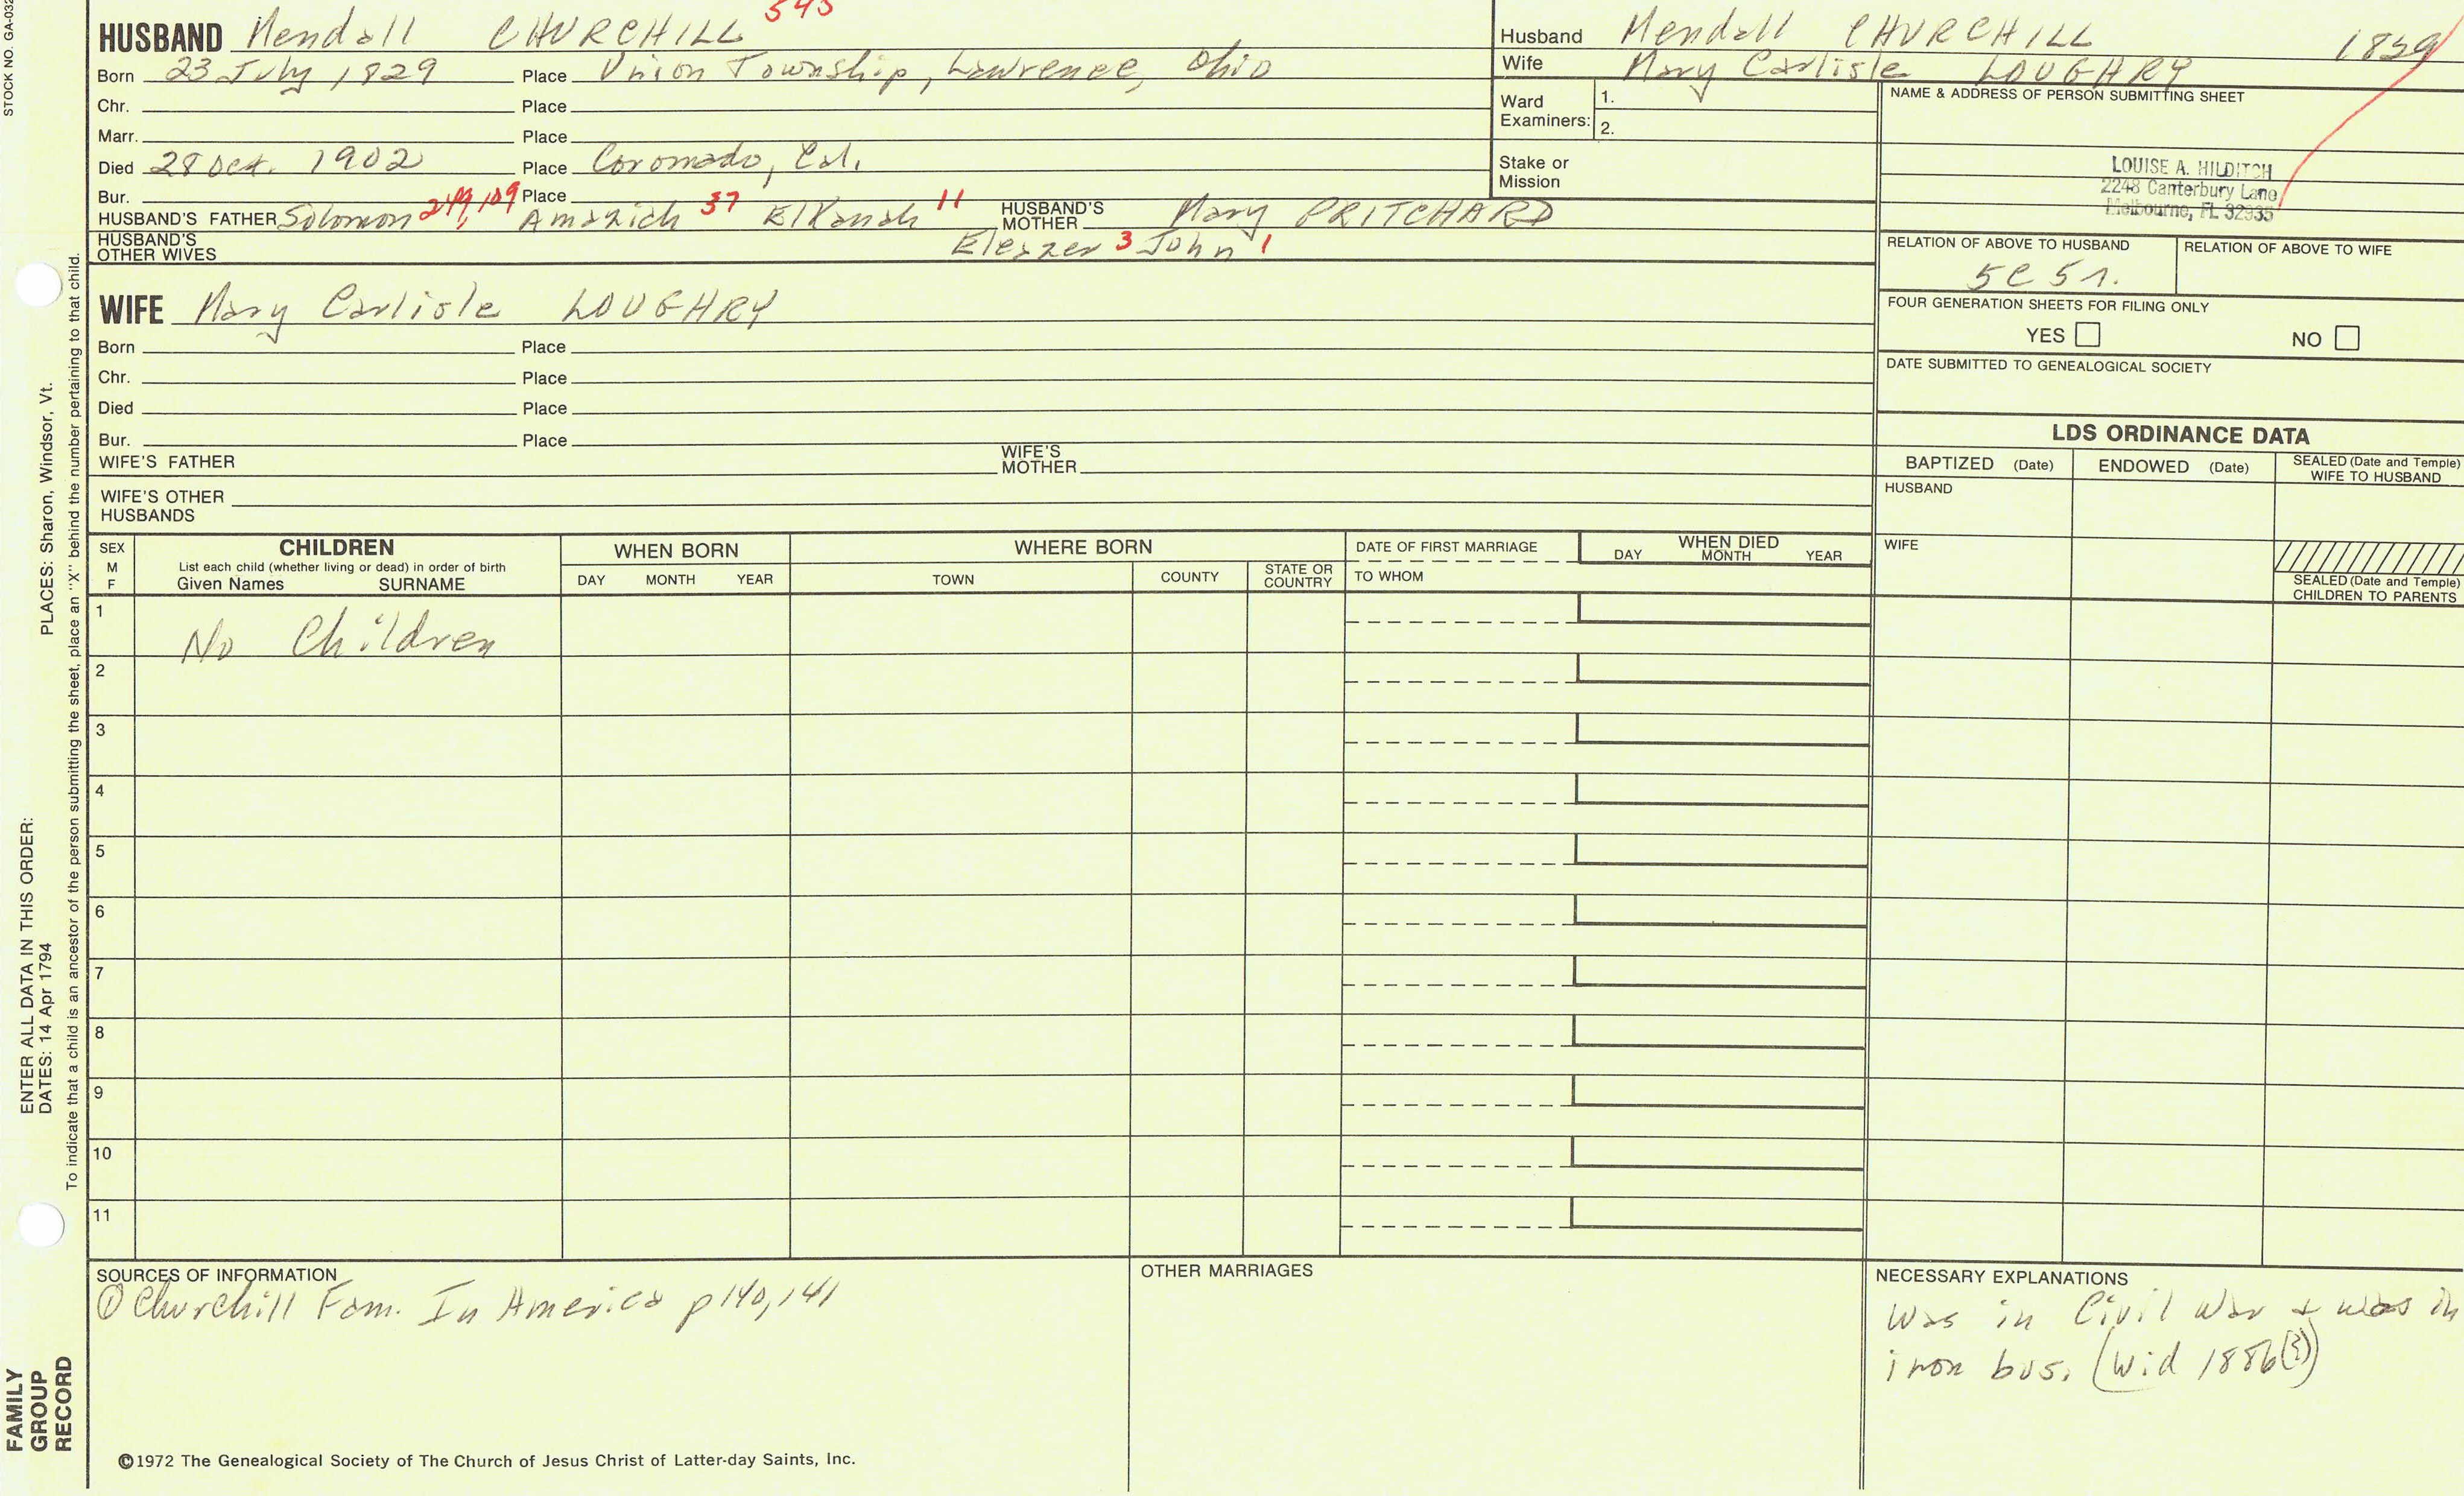 STOCK NO. GA-032
545
HUSBAND Mendall CHURCHILL
Born 23 July 1829 Place Union Township, Lawrence, Ohio
Chr. Place
Marr. Place
Died 28 Oct. 1902 Place Coronado, Cal.
Bur. Place
HUSBAND'S FATHER Solomon 249, 109 Amaziah 37 Elkanah 11 HUSBAND'S MOTHER Mary PRITCHARD
HUSBAND'S OTHER WIVES Eleazer 3 John 1
Husband Mendall CHURCHILL 1829
Wife Mary Carlisle LOUGHRY
Ward Examiners: 1.
2.
Stake or Mission
NAME & ADDRESS OF PERSON SUBMITTING SHEET
LOUISE A. HILDITCH
2248 Canterbury Lane
Melbourne, FL 32935
RELATION OF ABOVE TO HUSBAND RELATION OF ABOVE TO WIFE
5C 5r.
FOUR GENERATION SHEETS FOR FILING ONLY
YES NO
DATE SUBMITTED TO GENEALOGICAL SOCIETY
WIFE Mary Carlisle LOUGHRY
Born Place
Chr. Place
Died Place
Bur. Place
WIFE'S FATHER WIFE'S MOTHER
WIFE'S OTHER HUSBANDS
LDS ORDINANCE DATA
BAPTIZED (Date) ENDOWED (Date) SEALED (Date and Temple) WIFE TO HUSBAND
HUSBAND
WIFE
SEALED (Date and Temple) CHILDREN TO PARENTS
SEX M F
CHILDREN
List each child (whether living or dead) in order of birth
Given Names SURNAME
WHEN BORN
DAY MONTH YEAR
WHERE BORN
TOWN COUNTY STATE OR COUNTRY
DATE OF FIRST MARRIAGE
TO WHOM
WHEN DIED
DAY MONTH YEAR
1 No Children
2
3
4
5
6
7
8
9
10
11
SOURCES OF INFORMATION
① Churchill Fam. In America p 140, 141
OTHER MARRIAGES
NECESSARY EXPLANATIONS
Was in Civil War + was in
iron bus. (Wid 1886(?))
©1972 The Genealogical Society of The Church of Jesus Christ of Latter-day Saints, Inc.
FAMILY
GROUP
RECORD
ENTER ALL DATA IN THIS ORDER:
DATES: 14 Apr 1794 PLACES: Sharon, Windsor, Vt.
To indicate that a child is an ancestor of the person submitting the sheet, place an "X" behind the number pertaining to that child.